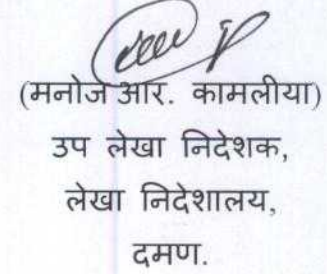 (मनोज आर. कामलीया)
उप लेखा निदेशक,
लेखा निदेशालय,
दमण.